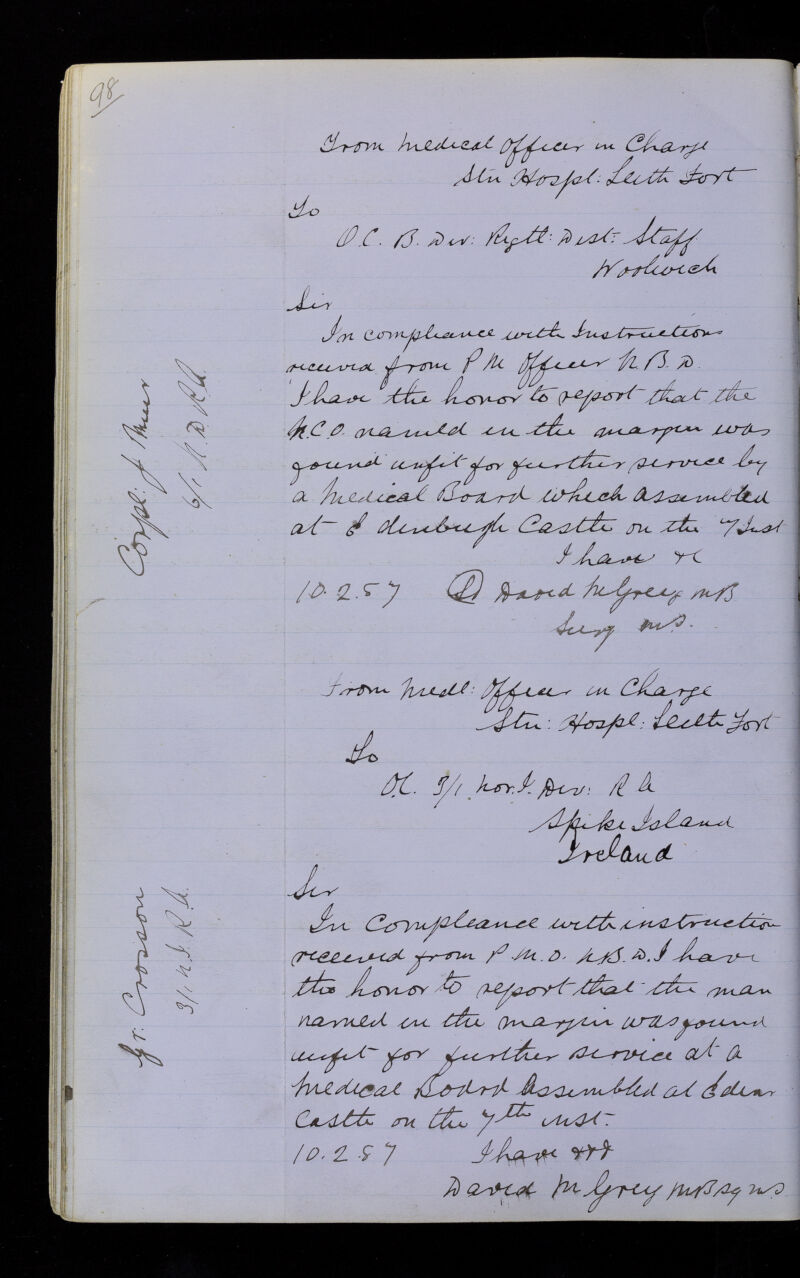 98
From Medical Officer in Charge
Stn Hospl: Leith Fort
To
O.C. B. Div: Regtl: Dist: Staff
Woolwich
Sir
In compliance with Instructions
received from P M Officer N. B. D.
I have the honor to report that the
N.C.O. named in the margin was
found unfit for further service by
a Medical Board which assembled
at Edinburgh Castle on the 7 Inst
I have &c
10.2.87 (Sd) David M Greig MB
Surg M.S.
Corpl: J. Muir
6/1 N. D. R.A.
From Medl: Officer in Charge
Stn: Hospl: Leith Fort
To
O.C. 3/1 Nor. I. Div: R A
Spike Island
Ireland
Sir
In compleance with instruction
received from P. M. O. N.B.D. I have
the honor to report that the man
named in the margin was found
unfit for further service at a
Medical Board Assembled at Edinr
Castle on the 7th inst.
10.2.87 I have
David M Greig MB Sg M.S
Gr. Crosson
3/1 N. I. R.A.